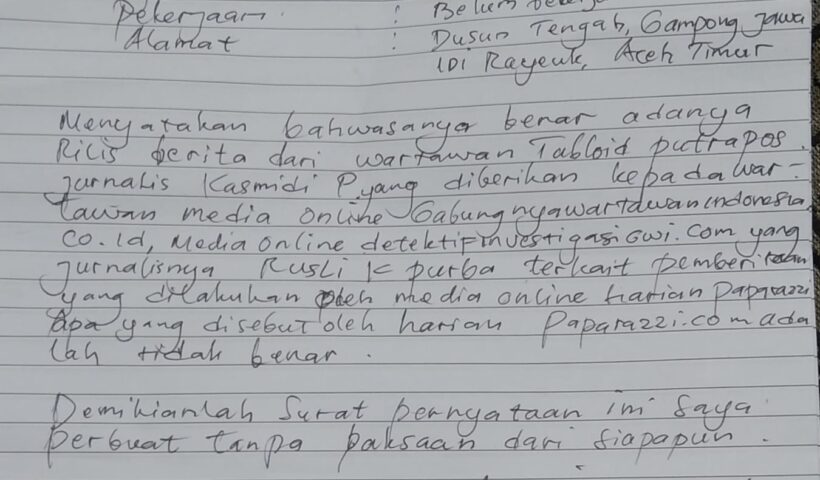 Pekerjaan :
Alamat : Dusun Tengah, Gampong Jawa
IDI Rayeuk, Aceh Timur
Menyatakan bahwasanya benar adanya
Rilis berita dari wartawan Tabloid putrapos.
jurnalis Kasmidi P yang diberikan kepada war-
tawan media online Gabungnyawartawanindonesia
co.id, Media online detektifinvestigasigwi.com yang
jurnalisnya Rusli K purba terkait pemberitaan
yang dilakukan oleh media online harian paparazzi
apa yang disebut oleh harian Paparazzi.com ada
lah tidak benar.
Demikianlah Surat pernyataan ini saya
perbuat tanpa paksaan dari siapapun.